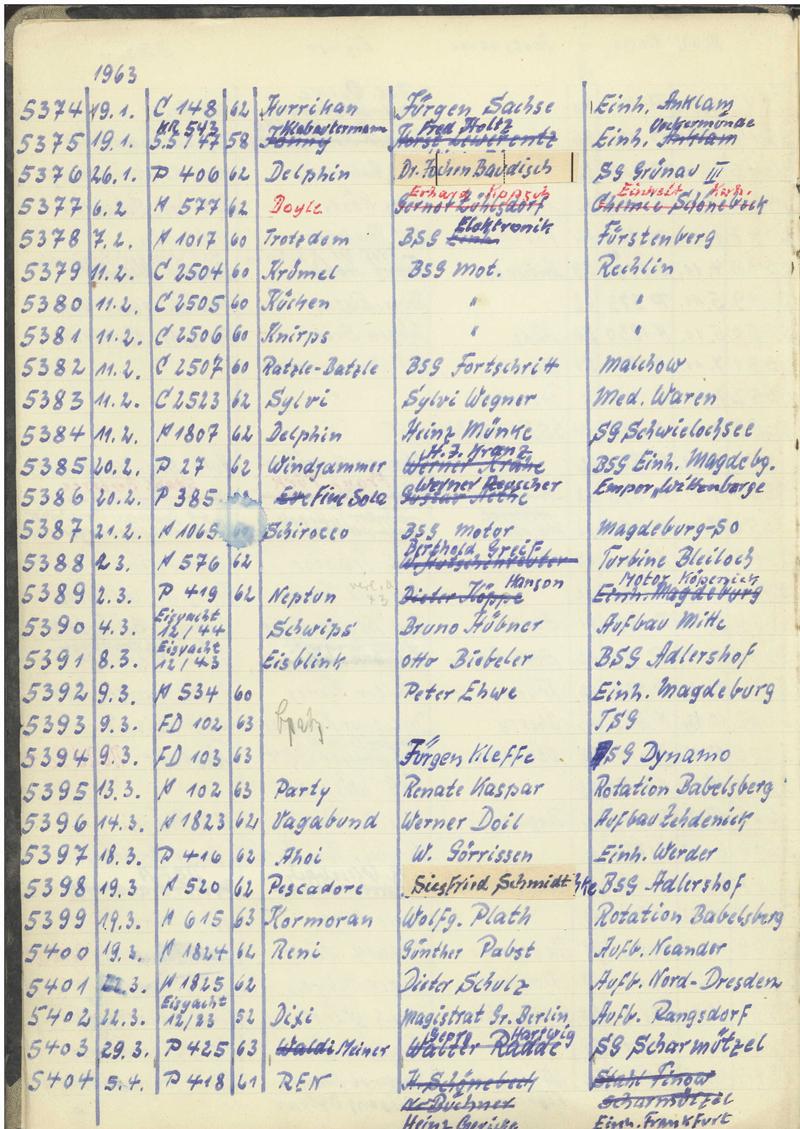 1963
5374 19.1. C 148 62 Hurrikan Jürgen Sachse Einh. Anklam
KR 543 Klabautermann Fred Holtz Ueckermünde
5375 19.1. 58 Horst Lewerentz Einh. Anklam
5376 26.1. P 406 62 Delphin Dr. Jochen Baudisch SG Grünau III
Erhard Koppsch Einheit
5377 6.2 H 577 62 Doyle Chemie Schönebeck
Elektronik
5378 7.2. H 1017 60 Trotzdem BSG Einh. Fürstenberg
5379 11.2. C 2504 60 Krümel BSG Mot. Rechlin
5380 11.2. C 2505 60 Küchen " "
5381 11.2. C 2506 60 Knirps " "
5382 11.2. C 2507 60 Ratzle-Batzle BSG Fortschritt Malchow
5383 11.2. C 2523 62 Sylvi Sylvi Wegner Med. Waren
5384 11.2. H 1807 62 Delphin Heinz Münke SG Schwielochsee
H.J. Kranz
5385 20.2. P 27 62 Windjammer Werner Krähe BSG Einh. Magdebg.
Werner Rauscher
5386 20.2. P 385 Fine Sole Gustav Empor Wittenberge
5387 21.2. H 1065 Schirocco BSG Motor Magdeburg-SO
Berthold Greif
5388 2.3. H 576 62 Turbine Bleiloch
Hanson Motor Köpenick
5389 2.3. P 419 62 Neptun Dieter Köppe Einh. Magdeburg
Eisyacht
5390 4.3. 12/44 Schwips Bruno Hübner Aufbau Mitte
Eisyacht
5391 8.3. 12/43 Eisblink Otto Biebeler BSG Adlershof
5392 9.3. H 534 60 Peter Ehwe Einh. Magdeburg
5393 9.3. FD 102 63 Spatz. TSG
5394 9.3. FD 103 63 Jürgen Kleffe SG Dynamo
5395 13.3. H 102 63 Party Renate Kaspar Rotation Babelsberg
5396 14.3. H 1823 62 Vagabund Werner Doil Aufbau Zehdenick
5397 18.3. P 416 62 Ahoi W. Görrissen Einh. Werder
5398 19.3 H 520 62 Pescadore Siegfried Schmidtke BSG Adlershof
5399 19.3. H 615 63 Kormoran Wolfg. Plath Rotation Babelsberg
5400 19.3. H 1824 62 Reni Günther Pabst Aufb. Neander
5401 22.3. H 1825 62 Dieter Schulz Aufb. Nord-Dresden
Eisyacht
5402 22.3. 12/23 52 Dixi Magistrat Gr. Berlin Aufb. Rangsdorf
Georg Hartwig
5403 29.3. P 425 63 Waldi Meiner Walter Radde SG Scharmützel
5404 5.4. P 418 61 REN H. Schönebeck Stahl Finow
Büchner Scharmützel
Heinz Gericke Einh. Frankfurt